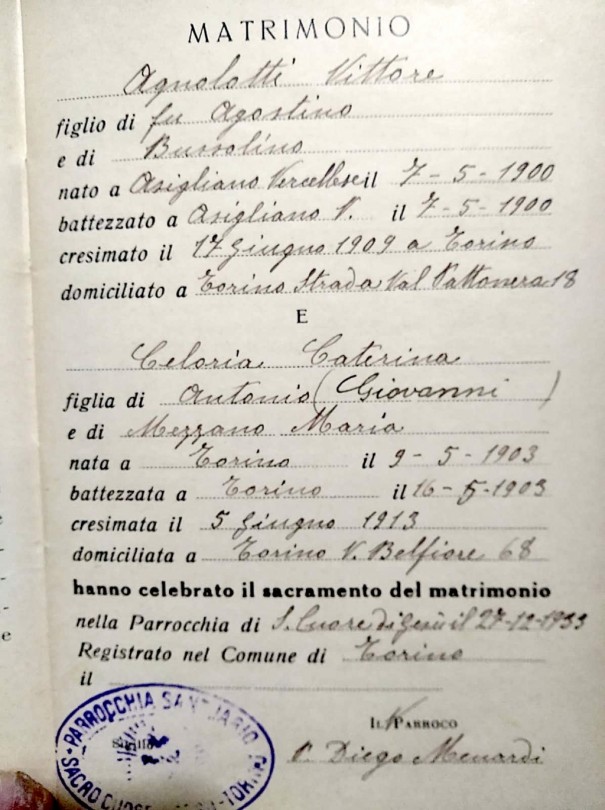 MATRIMONIO
Agnolotti Vittore
figlio di fu Agostino
e di Bussolino
nato a Asigliano Vercellese il 7-5-1900
battezzato a Asigliano V. il 7-5-1900
cresimato il 17 Giugno 1909 a Torino
domiciliato a Torino Strada Val Pattonera 18
E
Celoria Caterina
figlia di Antonio (Giovanni)
e di Mezzano Maria
nata a Torino il 9-5-1903
battezzata a Torino il 16-5-1903
cresimata il 5 Giugno 1913
domiciliata a Torino V. Belfiore 68
hanno celebrato il sacramento del matrimonio
nella Parrocchia di S. Cuore di Gesù il 27-12-1933
Registrato nel Comune di Torino
il
PARROCCHIA SANTUARIO
SACRO CUORE TORINO
IL PARROCO
Diego Menardi